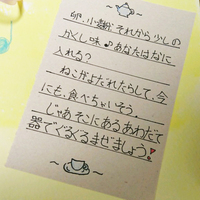 卵、小麦粉、それから少しの
かくし味♪あなたはなに
入れる?
ねこがよだれたらして、今
にも、食べちゃいそう。
じゃあそこにあるあわだて
器でぐるぐるまぜましょう。